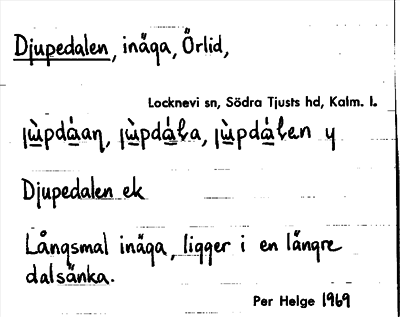 Djupedalen, inäga, Örlid,
Locknevi sn, Södra Tjusts hd, Kalm. l.
Djupedalen ek
Långsmal inäga, ligger i en längre
dalsänka.
Per Helge 1969